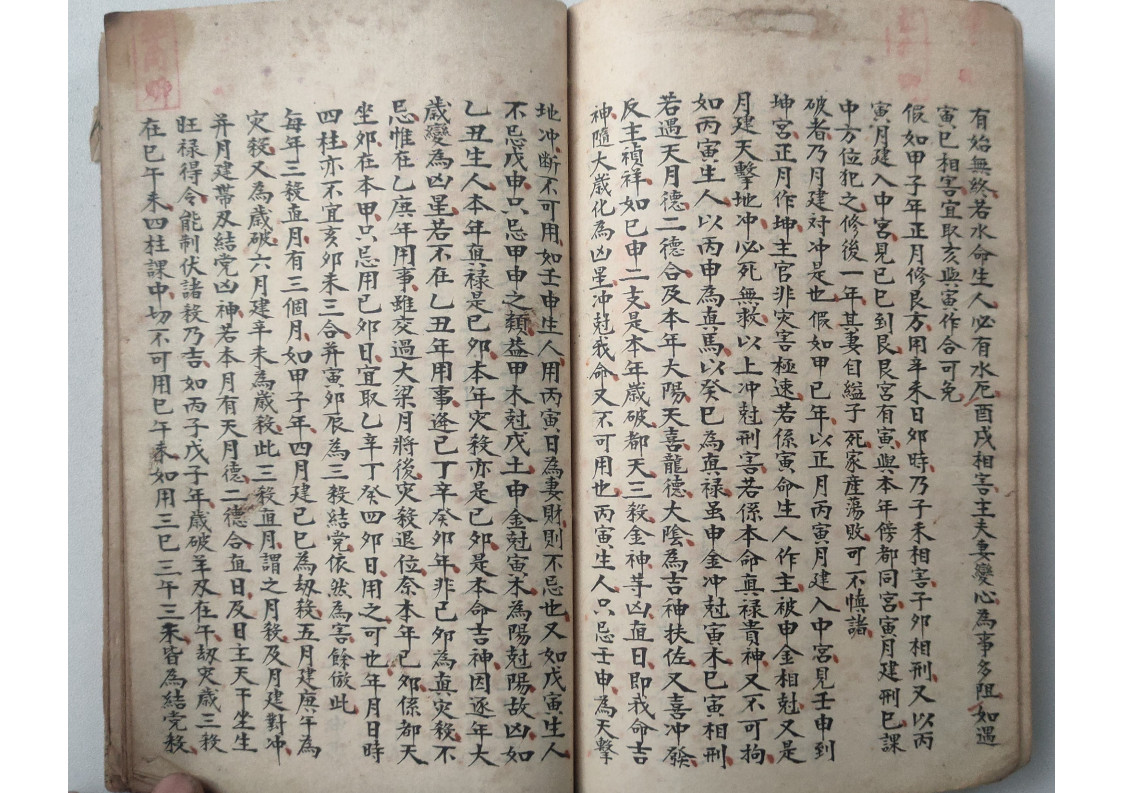 有始無終若水命生人必有水厄酉戌相害主夫妻變心為事多阻如遇
寅巳相害宜取亥與寅作合可免
假如甲子年正月修艮方用辛未日卯時乃子未相害子卯相刑又以丙
寅月建入中宮見己巳到艮艮宮有寅與本年傍都同宮寅月建刑巳課
中方位犯之修後一年其妻自縊子死家產蕩敗可不慎諸
破者乃月建対冲是也假如甲巳年以正月丙寅月建入中宮見壬申到
坤宮正月作坤主官非灾害極速若係寅命生人作主被申金相尅又是
月建天擊地冲必死無救以上冲尅刑害若係本命真禄貴神又不可拘
如丙寅生人以丙申為真馬以癸巳為真禄虽申金冲尅寅木巳寅相刑
若遇天月德二德合及本年大陽天喜龍德大陰為吉神扶佐又喜冲發
反主禎祥如巳申二支是本年歲破都天三殺金神等凶直日即我命吉
神隨大歲化為凶星冲尅我命又不可用也丙寅生人只忌壬申為天擊
地冲断不可用如壬申生人用丙寅日為妻財則不忌也又如戊寅生人
不忌戊申只忌甲申之類益甲木尅戊土申金尅寅木為陽尅陽故凶如
乙丑生人本年真禄是己卯本年灾殺亦是己卯是本命吉神因逐年大
歲變為凶星若不在乙丑年用事逢己丁辛癸卯年非己卯為真灾殺不
忌惟在乙庚年用事雖交過大梁月將後灾殺退位奈本年己卯係都天
坐卯在本甲只忌用己卯日宜取乙辛丁癸四卯日用之可也年月日時
四柱亦不宜亥卯未三合并寅卯辰為三殺結党依然為害餘倣此
每年三殺直月有三個月如甲子年四月建己巳為刼殺五月建庚午為
灾殺又為歲破六月建辛未為歲殺此三殺直月謂之月殺及月建對冲
并月建帶及結党凶神若本月有天月德二德合直日及日主天干坐生
旺禄得令能制伏諸殺乃吉如丙子戊子年歲破羊刃在午刼灾歲三殺
在巳午未四柱課中切不可用巳午未如用三巳三午三未皆為結党殺